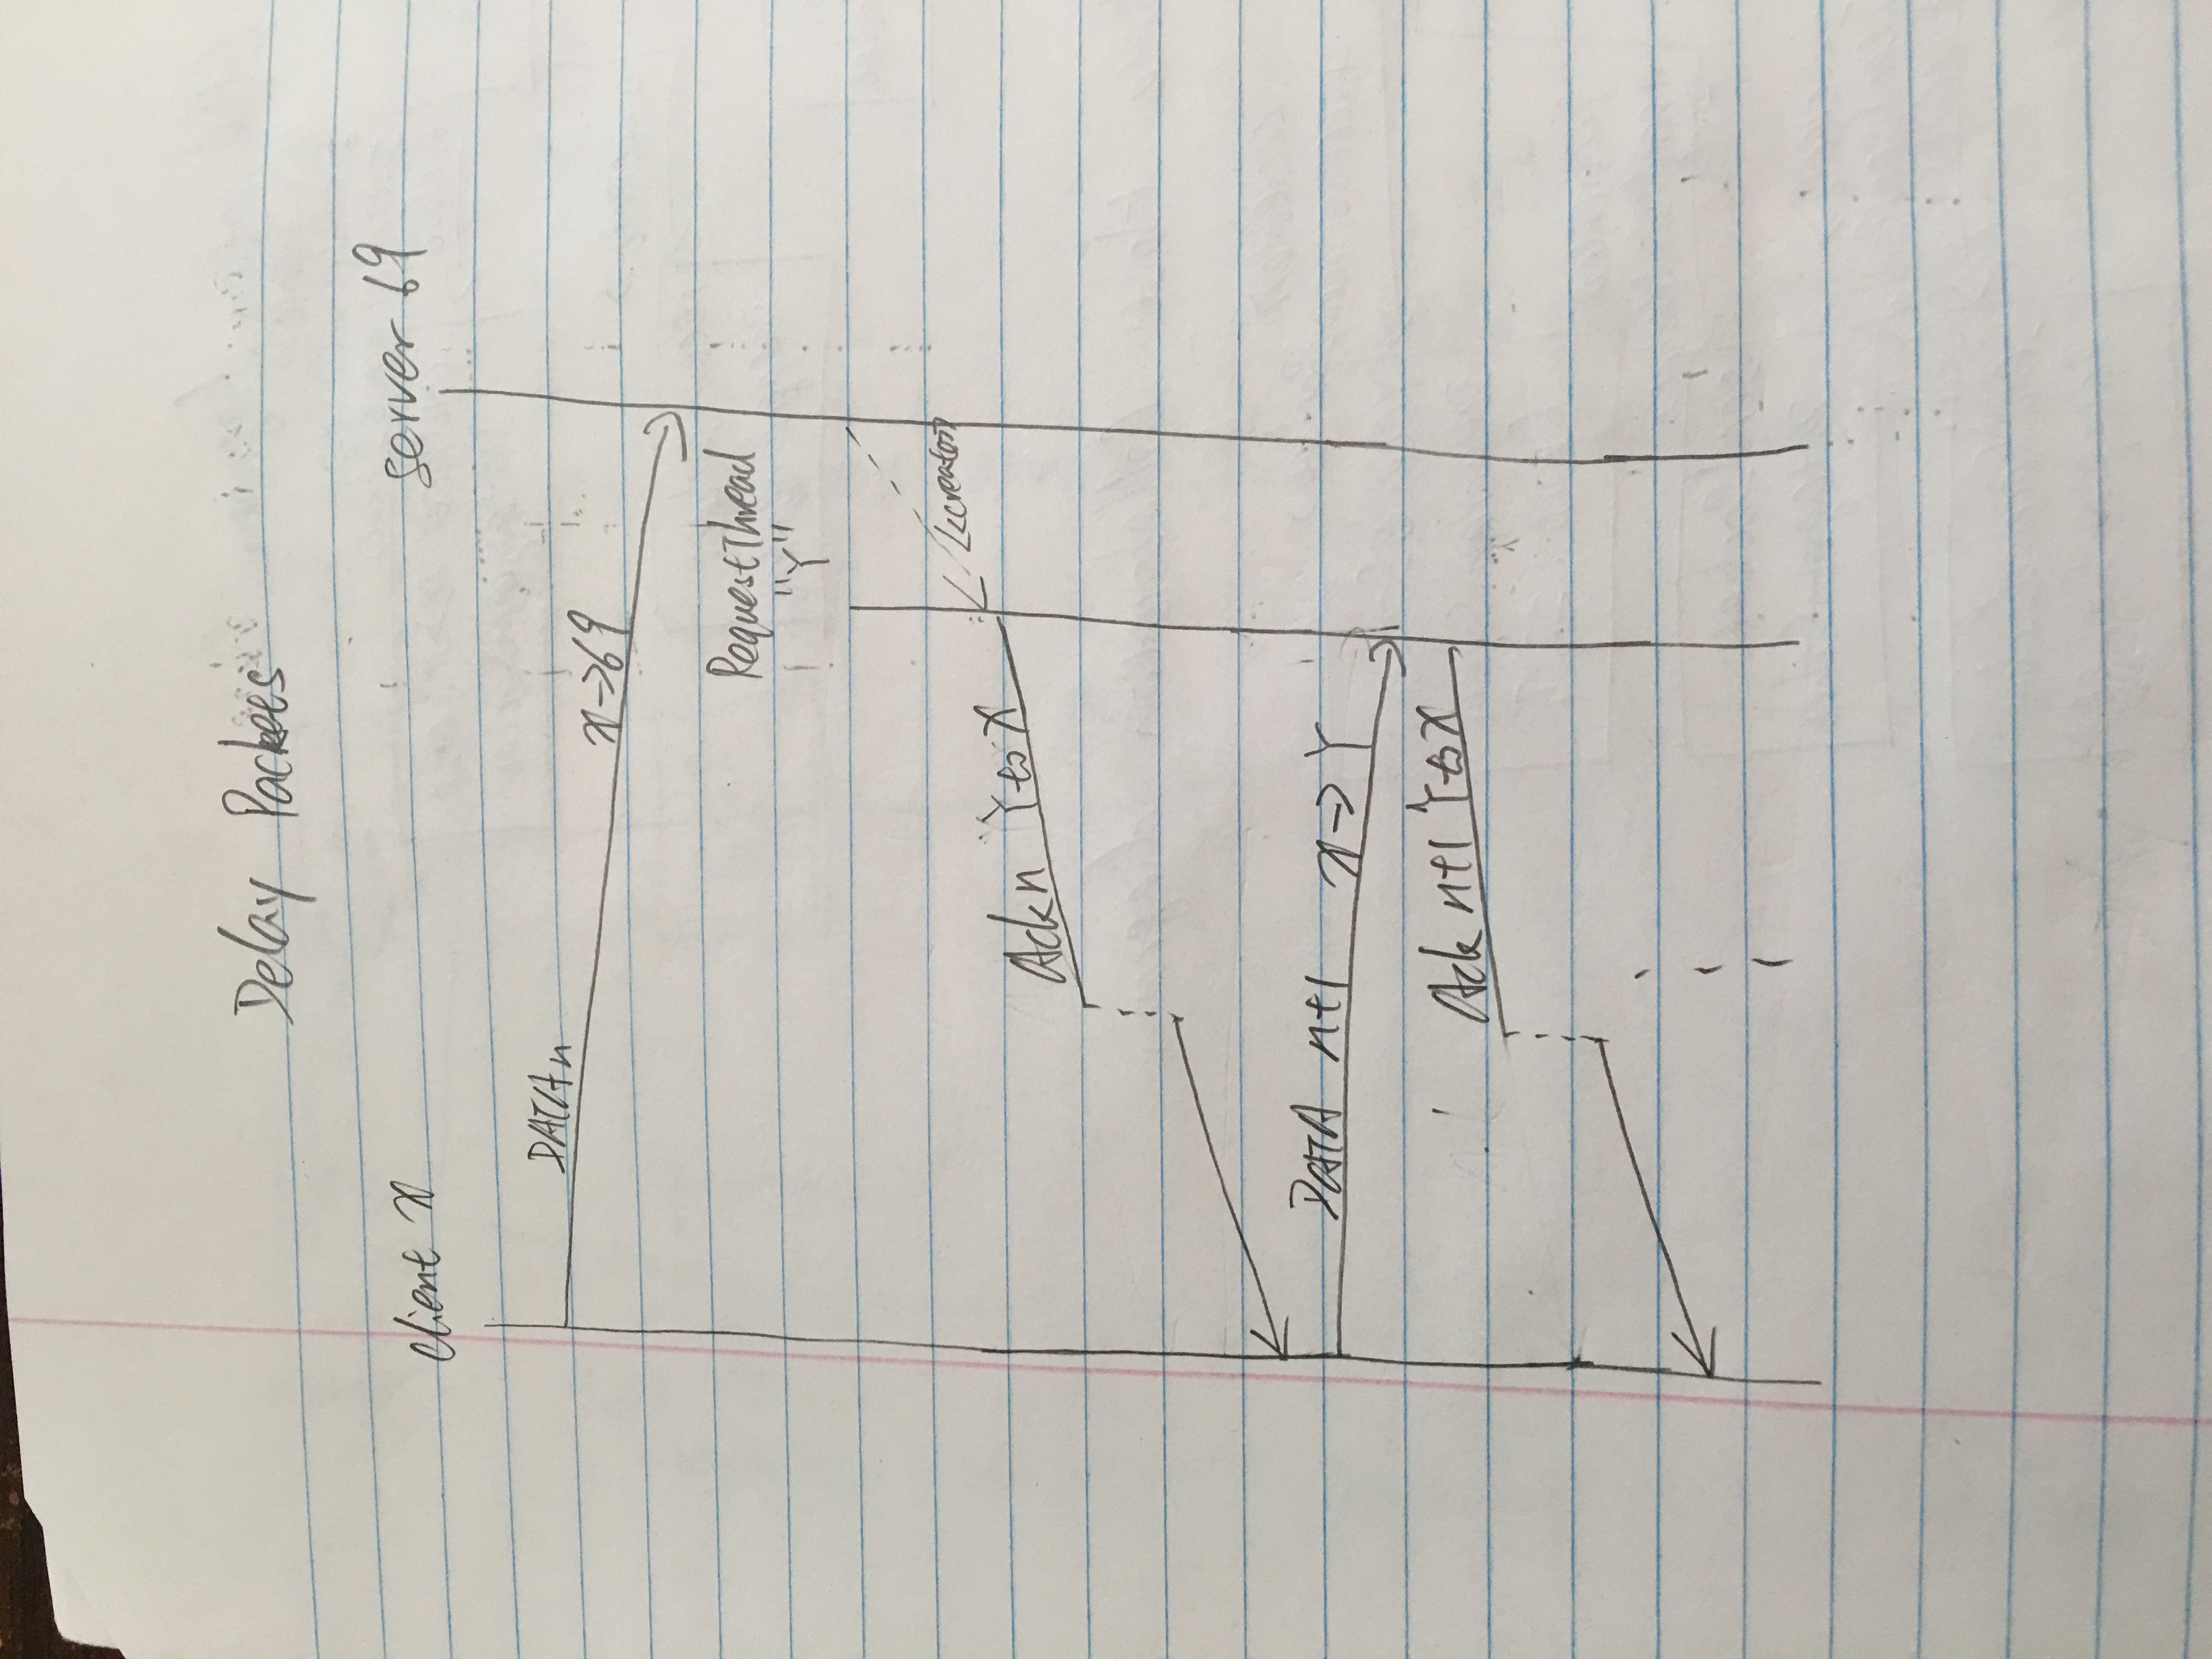 Delay Packets
client X
server 69
DATA n
X→69
RequestThread
"Y"
<<create>>
Ack n Y to X
DATA n+1 X→Y
Ack n+1 Y to X